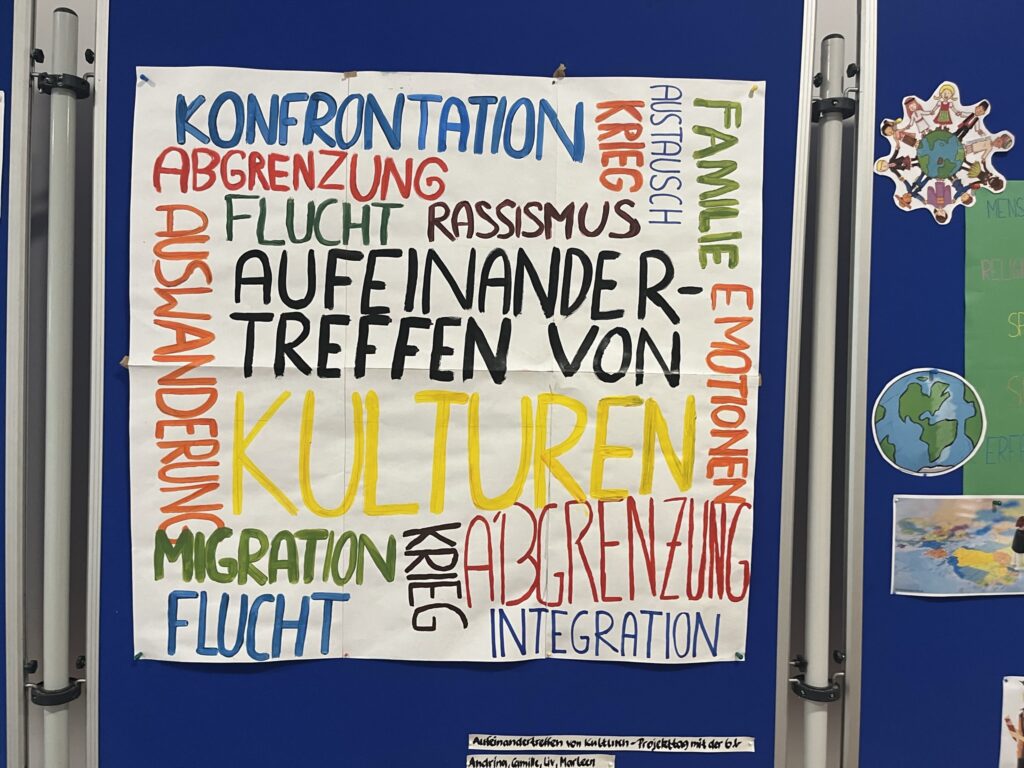 KONFRONTATION
KRIEG
AUSTAUSCH
FAMILIE
ABGRENZUNG
FLUCHT
RASSISMUS
AUSWANDERUNG
AUFEINANDER-
TREFFEN VON
KULTUREN
EMOTIONEN
MIGRATION
KRIEG
ABGRENZUNG
FLUCHT
INTEGRATION
Aufeinandertreffen von Kulturen - Projekttag mit der
Andrina, Camille, Liv, Marleen